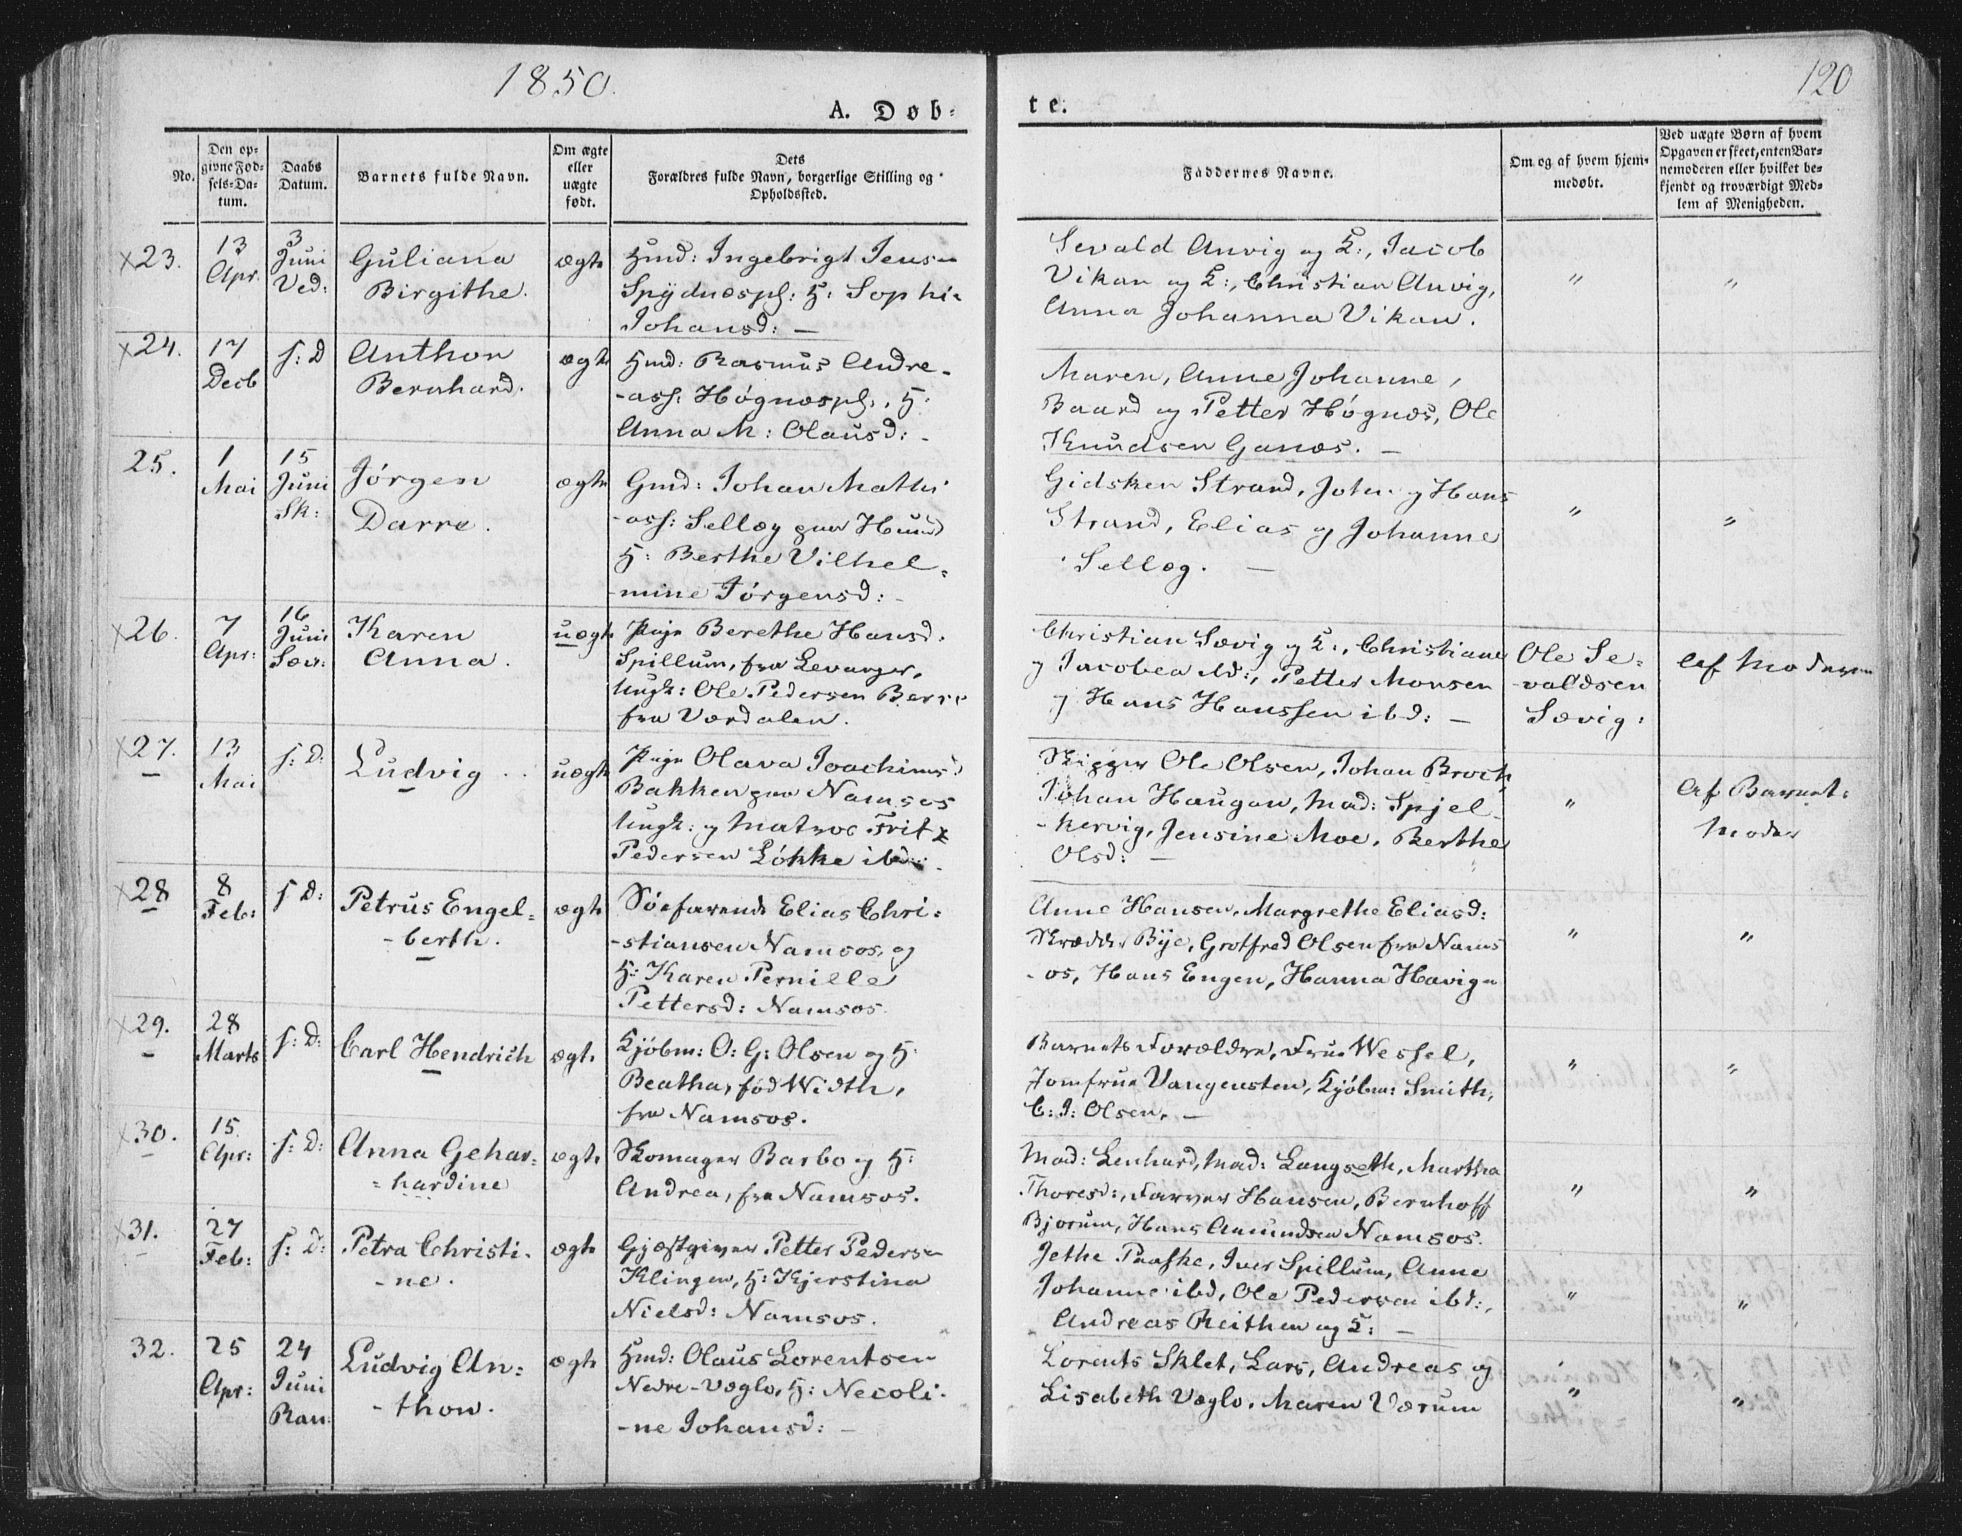 1850.
120
A. Døb-
te.
No.
Den op-
givne Fød-
sels-Da-
tum.
Daabs
Datum.
Barnets fulde Navn.
Om ægte
eller
uægte
født.
Dets
Forældres fulde Navn, borgerlige Stilling og
Opholdssted.
Faddernes Navne.
Om og af hvem hjem-
medøbt.
Ved uægte Børn af hvem
Opgaven er skeet, enten Bar-
nemoderen eller hvilket be-
kjendt og troværdigt Med-
lem af Menigheden.
x23.
13
Apr.
3
Juni
Ved:
Guliana
Birgithe.
ægte
Hmd: Ingebrigt Jens-
Spydnæspl: H: Sophi-
Johansd: —
Sevald Anvig og K:, Jacob
Vikan og K:, Christian Anvig,
Anna Johanna Vikan.
"
"
x24.
17
Decb
s: D
Anthon
Bernhard.
ægte
Hmd: Rasmus Andre-
-ass: Høgnæspl:, H:
Anna M: Olausd: -
Maren, Anne Johanne,
Baard og Petter Høgnæs, Ole
Knudsen Ganæs. —
25.
1
Mai
15
Juni
Sk:
Jørgen
Darre.
ægte
Gmd: Johan Mathi
-ass: Sellæg paa Hund
H: Berthe Vilhel-
-mine Jørgensd: -
Gidsken Strand, John og Hans
Strand, Elias og Johanne
Sellæg. —
"
"
x26.
7
Apr:
16
Juni
Sæv:
Karen
Anna.
uægte
Pige Berethe Hansd.
Spillum, fra Levanger,
Ungk: Ole Pedersen Berre
fra Værdalen.
Christian Sævig og K:, Christiane
og Jacobea ibd:, Petter Monsen
og Hans Hanssen ibd: —
Ole Se-
valdsen
Sævig:
Af Moderen
x27.
13
Mai
s: D:
Ludvig
uægte
Pige Olava Joachimsd
Bakken paa Namsos
Ungk: og Matros Fritz
Pedersen Løkke ibd:.
Skipper Ole Olsen, Johan Brock,
Johan Haugan, Mad: Spjel-
-kervig, Jensine Moe, Berthe
Olsd: —
"
Af Barnet:
Moder
x28
8
Feb:
s D:
Petrus Engel-
-berth.
ægte
Søefarende Elias Chri-
-stiansen Namsos, og
H: Karen Pernille
Pettersd: Namsos.
Anne Hansen, Margrethe Eliasd:
Skrædder Bye, Grotfred Olsen fra Nams
-os, Hans Engen, Hanna Havig-
"
"
x29.
28
Marts
s: D:
Carl Hendrich
ægte
Kjøbm: O: G: Olsen og H:
Beatha, fød Width,
fra Namsos.
Barnets Forældre, Frue Wessel,
Jomfrue Vangensten, Kjøbm: Smith,
C: J: Olsen. —
"
"
x30.
15
Apr:
s: D:
Anna Gehar-
-hardine
ægte
Skomager Barbo og H:
Andrea, fra Namsos.
Mad: Lenhard, Mad: Langseth, Martha
Thoresd:, Farver Hansen, Bernhoff
Bjørum, Hans Amundsen Namsos.
"
"
x31.
27
Feb:
s: D:
Petra Christi-
-ne.
ægte
Gjæstgiver Petter Pedersen
Klingen, H: Kjerstina
Nielsd: Namsos.
Jethe Paaske, Iver Spillum, Anne
Johanne ibd, Ole Pedersen ibd:,
Andreas Reithen og K: —
"
"
32.
25
Apr:
24
Juni
Ran:
Ludvig An-
-thon.
ægte
Hmd: Olaus Lorentsen
Nedre-Væglo, H: Necoli-
-ne Johansd: —
Lorents Sklet, Lars, Andreas og
Lisabeth Væglo, Maren Værum
"
"